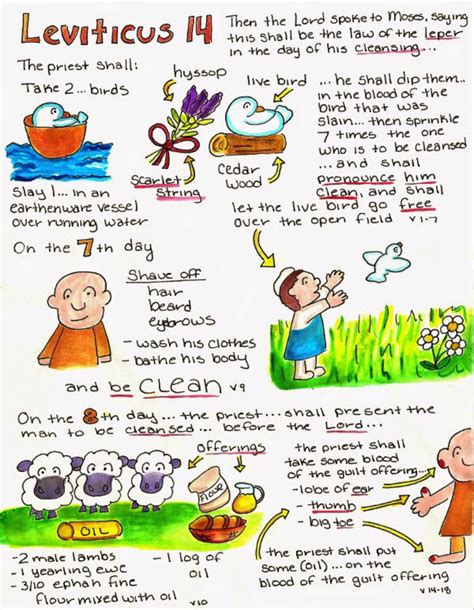 Leviticus 14
Then the Lord spoke to Moses, saying
this shall be the law of the leper
in the day of his cleansing...
The priest shall:
Take 2... birds
hyssop
live bird
Scarlet
String
Cedar
wood
Slay 1... in an
earthenware vessel
over running water
... he shall dip them..
in the blood of the
bird that was
slain... then sprinkle
7 times the one
who is to be cleansed
... and shall
pronounce him
clean, and shall
let the live bird go free
over the open field v1-7
On the 7th day
Shave off
hair
beard
eyebrows
- wash his clothes
- bathe his body
and be CLEAN v9
On the 8th day... the priest... shall present the
man to be cleansed... before the Lord...
offerings
FLOUR
OIL
- 2 male lambs
- 1 yearling ewe
- 3/10 ephah fine
flour mixed with oil
- 1 log of
oil
v10
the priest shall
take some blood
of the guilt offering...
- lobe of ear
- thumb
- big toe
the priest shall put
some (oil) ... on the
blood of the guilt offering
v 14-18